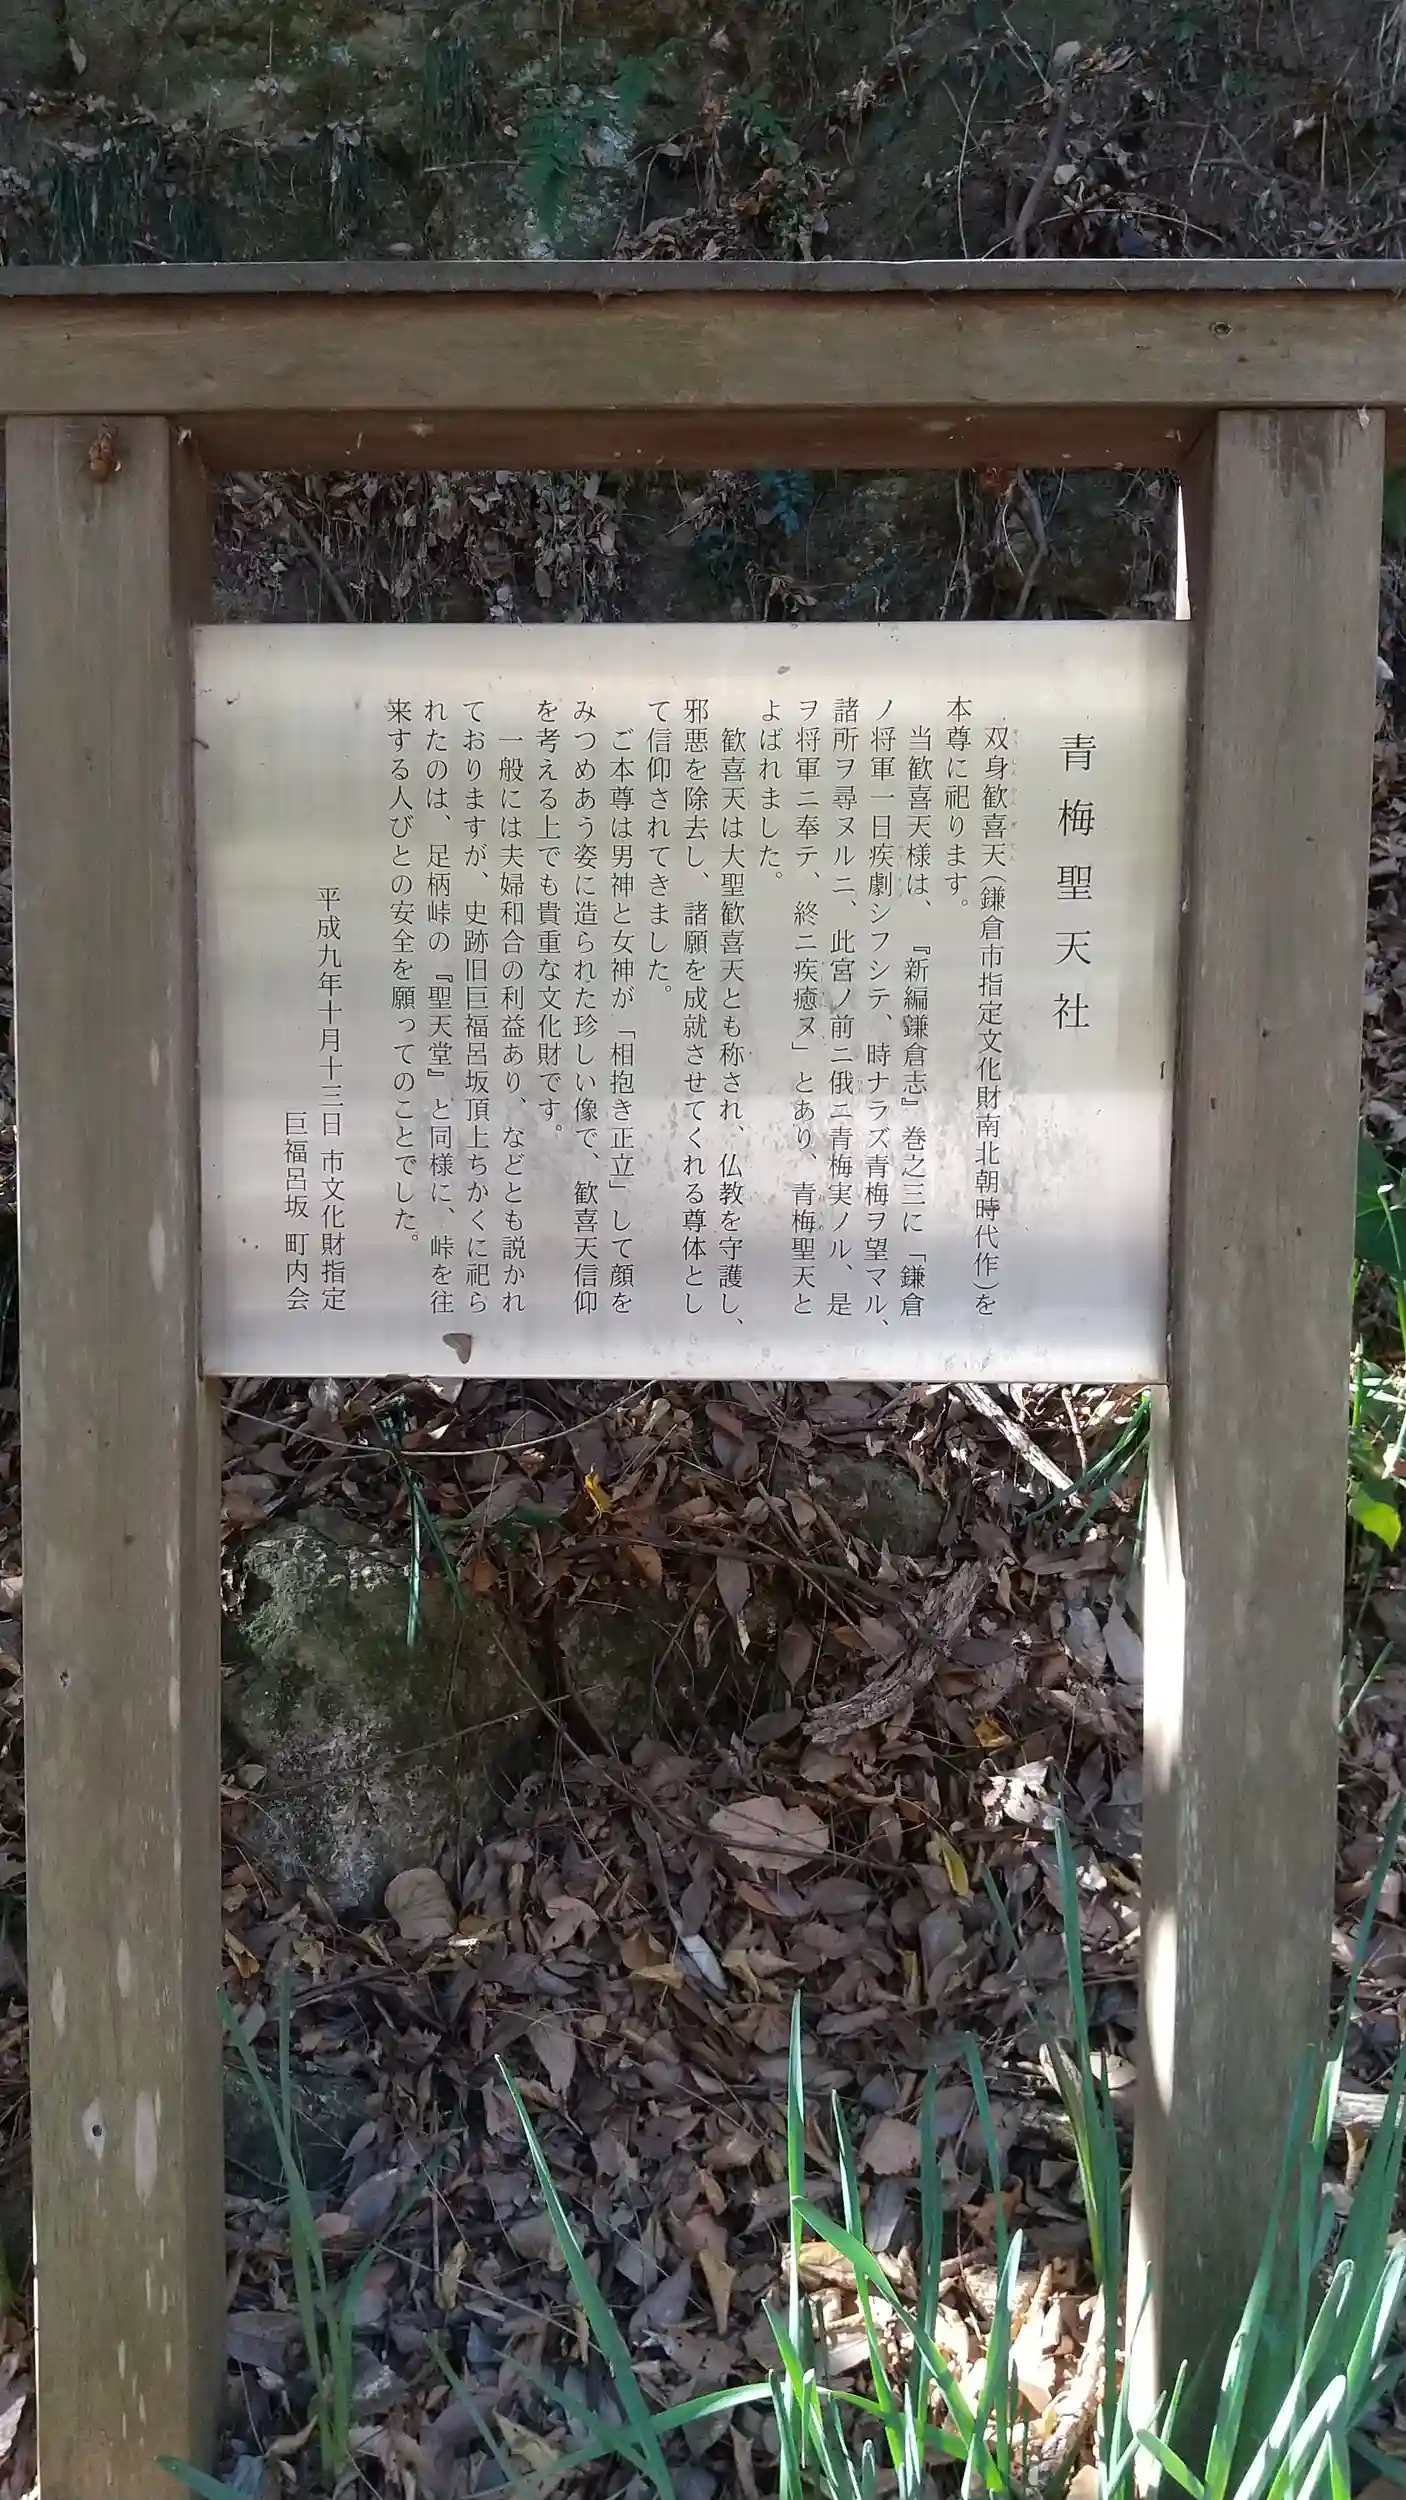 青梅聖天社
双身歓喜天（鎌倉市指定文化財南北朝時代作）を
本尊に祀ります。
当歓喜天様は、『新編鎌倉志』巻之三に「鎌倉
ノ将軍一日疾劇シフシテ、時ナラズ青梅ヲ望マル、
諸所ヲ尋ヌルニ、此宮ノ前ニ俄ニ青梅実ノル、是
ヲ将軍ニ奉テ、終ニ疾癒ヌ」とあり、青梅聖天と
よばれました。
歓喜天は大聖歓喜天とも称され、仏教を守護し、
邪悪を除去し、諸願を成就させてくれる尊体とし
て信仰されてきました。
ご本尊は男神と女神が「相抱き正立」して顔を
みつめあう姿に造られた珍しい像で、歓喜天信仰
を考える上でも貴重な文化財です。
一般には夫婦和合の利益あり、などとも説かれ
ておりますが、史跡旧巨福呂坂頂上ちかくに祀ら
れたのは、足柄峠の『聖天堂』と同様に、峠を往
来する人びとの安全を願ってのことでした。
平成九年十月十三日 市文化財指定
巨福呂坂 町内会